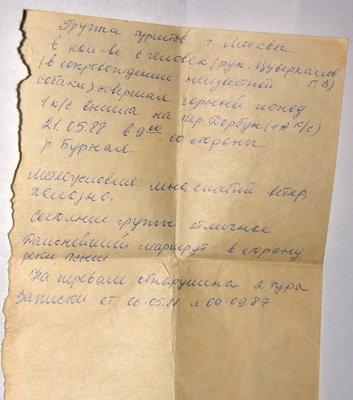 Группа туристов г. Москвы
в кол-ве 6 человек (рук. Г. В)
(в сопровождении неизвестной
собаки) совершая горный поход
1 к/с вышла на пер. (1А к/с)
21.05.88 в 9⁰⁰ со стороны
р. Бурная
Метеоусловия: сильный ветер,
холодно.
Состояние группы отличное
Дальнейший маршрут: в сторону
реки
На перевале обнаружена 2 тура
Записки от 06.05.88 и 09.09.87